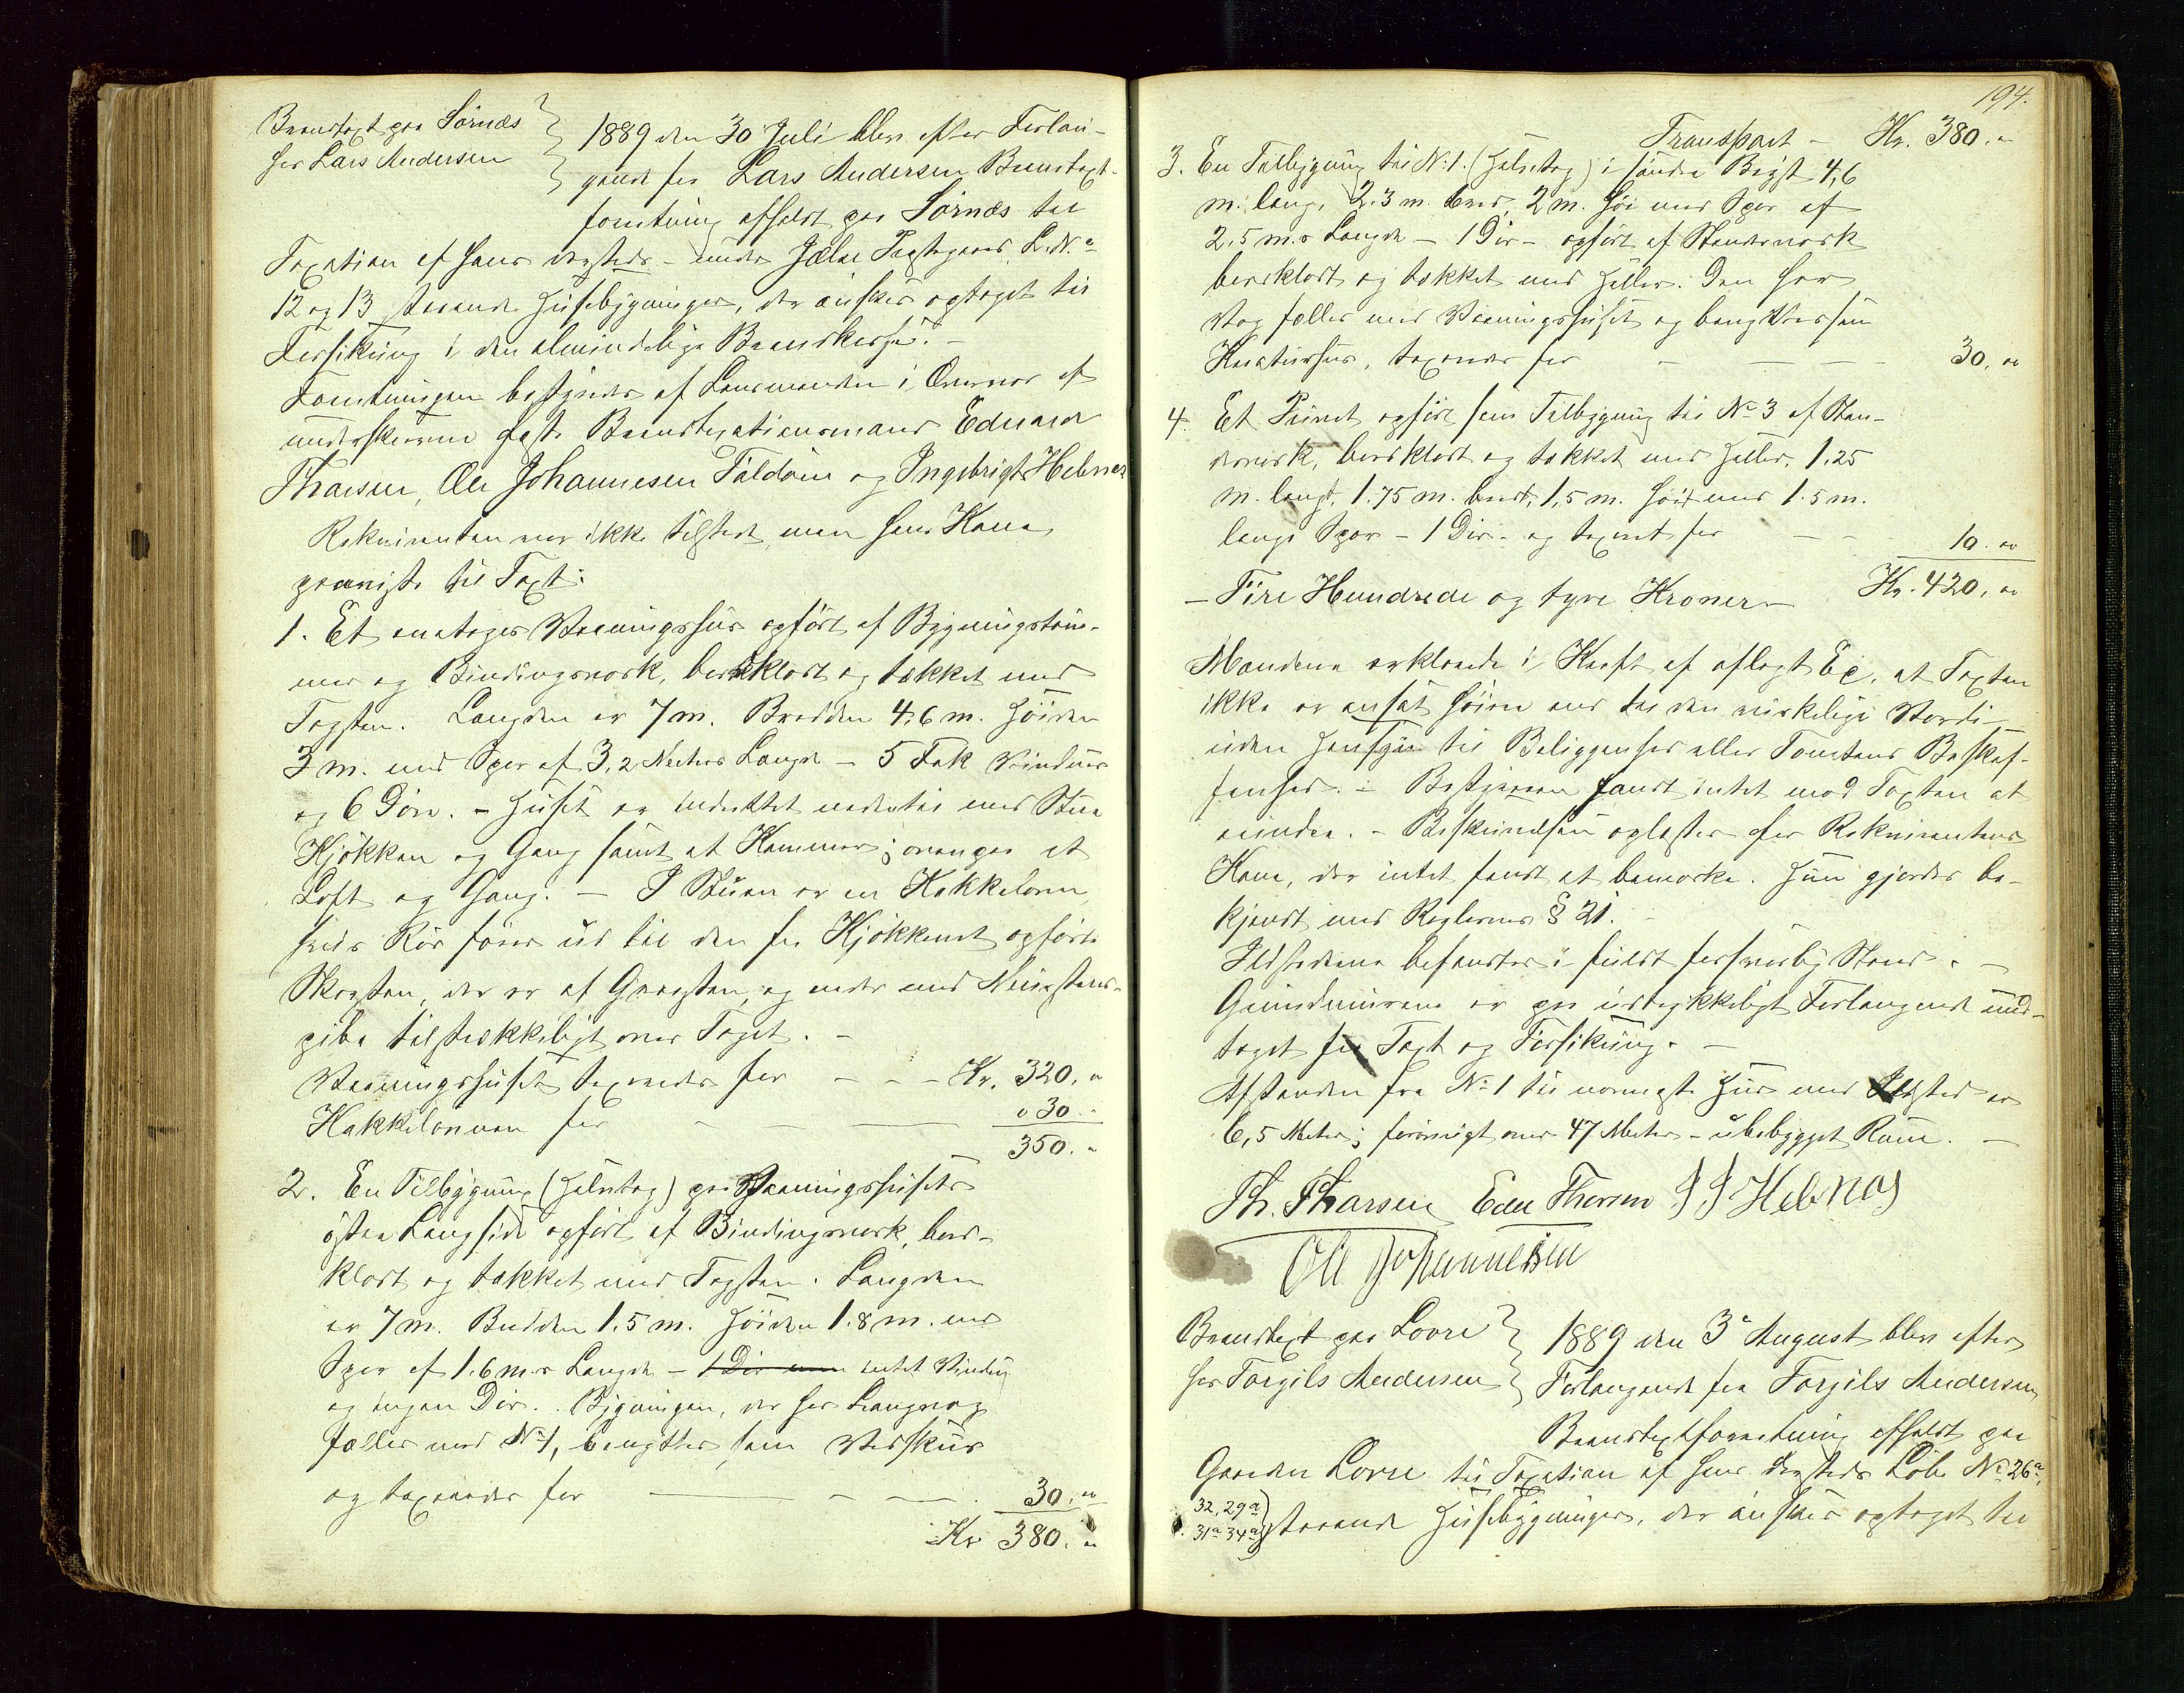 Brandtaxt paa Sörnæs
hos Lars Andersen
1889 den 30 Juli blev efter Forlan-
gende fra Lars Andersen Brandtaxt-
forretning afholdt paa Sörnæs til
Taxation af hans dersteds - under Jælse Prestegaard L.N.º
12 og 13 staaende Husebygninger, der önskes optaget til
Forsikring i den almindelige Brandkasse. -
Forretningen bestyredes af Lensmanden i Overvær af
underskrevne faste Brandtaxationsmænd Eduard
Thorsen, Ole Johannesen Foldöen og Ingebrigt Hebnes
Rekvirenten var ikke tilstede, men hans Kone
paaviste til Taxt:
1. Et enetages Vaaningshus opfört af Bygningstöm-
mer og Bindingsverk, bordklædt og tækket med
Tagsten. Længden er 7 m. Bredden 4,6 m. Höiden
3 m. med Sper af 3,2 Meters Længde - 5 Fak Vinduer
og 6 Döre. - Huset er indrettet nedentil med Stue
Kjökken og Gang samt et Kammer; ovenpaa et
Loft og Gang. - I Stuen er en Kakkelovn
hvis Rör förer ud til den fra Kjökkenet opförte
Skorsten, der er af Graasten, og ender med Muurstens-
pibe tilstrækkeligt over Taget. -
Vaaningshuset taxeredes for - - - Kr. 320. "
Kakkelovnen for - - " 30. "
350. "
2. En Tilbygning (Halvtag) paa Vaaningshusets
östre Langside opfört af Bindingsverk, bord-
klædt og tækket med Tagsten. Længden
er 7 m. Bredden 1.5 m. Höiden 1.8 m. med
Sper af 1.6 m.s Længde - 1 Dör men intet Vindu
og ingen Dör. Bygningen, der har Langvæg
fælles med N.1, benyttes som Vedskur
og taxeredes for - - - 30. "
Kr 380. "
194.
Transport - Kr. 380. "
3. En Tilbygning til No 1. (Halvtag) i söndre Bryst 4,6
m. lang, 2.3 m. bred, 2 m. höi med Sper af
2.5 m.s Længde - 1 Dör - opfört af Stenderverk
bordklædt og tækket med Heller. Den har
Væg fælles med Vaaningshuset og benyttes som
Kreaturhus, taxeredes for - - - 30. "
4. Et Privet opfört som Tilbygning til No 3 af Sten-
derverk, bordklædt og tækket med Heller, 1.25
m. langt, 1.75 m. bredt, 1,5 m. höit med 1.5 m.
lange Sper - 1 Dör - og taxeret for - - 10. "
- Fire Hundrede og tyve Kroner - Kr. 420. "
Mændene erklærede i Kraft af aflagt Ed, at Taxten
ikke er ansat höiere end til den virkelige Værdi -
uden Hensyn til Beliggenhed eller Tomtens Beskaf-
fenhed. - Bestyreren fandt intet mod Taxten at
erindre. - Beskrivelsen oplæstes for Rekvirentens
Kone, der intet fandt at bemærke. Hun gjordes be-
kjendt med Reglernes § 21. -
Ildstederne befandtes i fuldt forsvarlig Stand. -
Grundmurene er paa udtrykkeligt Forlangende und-
taget fra Taxt og Forsikring. -
Afstanden fra No 1 til nærmeste Hus med Ildsted er
6,5 Meter; forövrigt over 47 Meter - ubebygget Rum. -
Th. Tharsen Edu Thorsen I I Hebnes
Ole Johannessen
Brandtaxt paa Lovre
hos Torgils Andersen
1889 den 3.e August blev efter
Forlangende fra Torgils Andersen
Brandtaxtforretning afholdt paa
Gaarden Lovre til Taxation af hans dersteds Löbe No 26a,
32, 29a
31a 34a staaende Husebygninger, der önskes optaget til